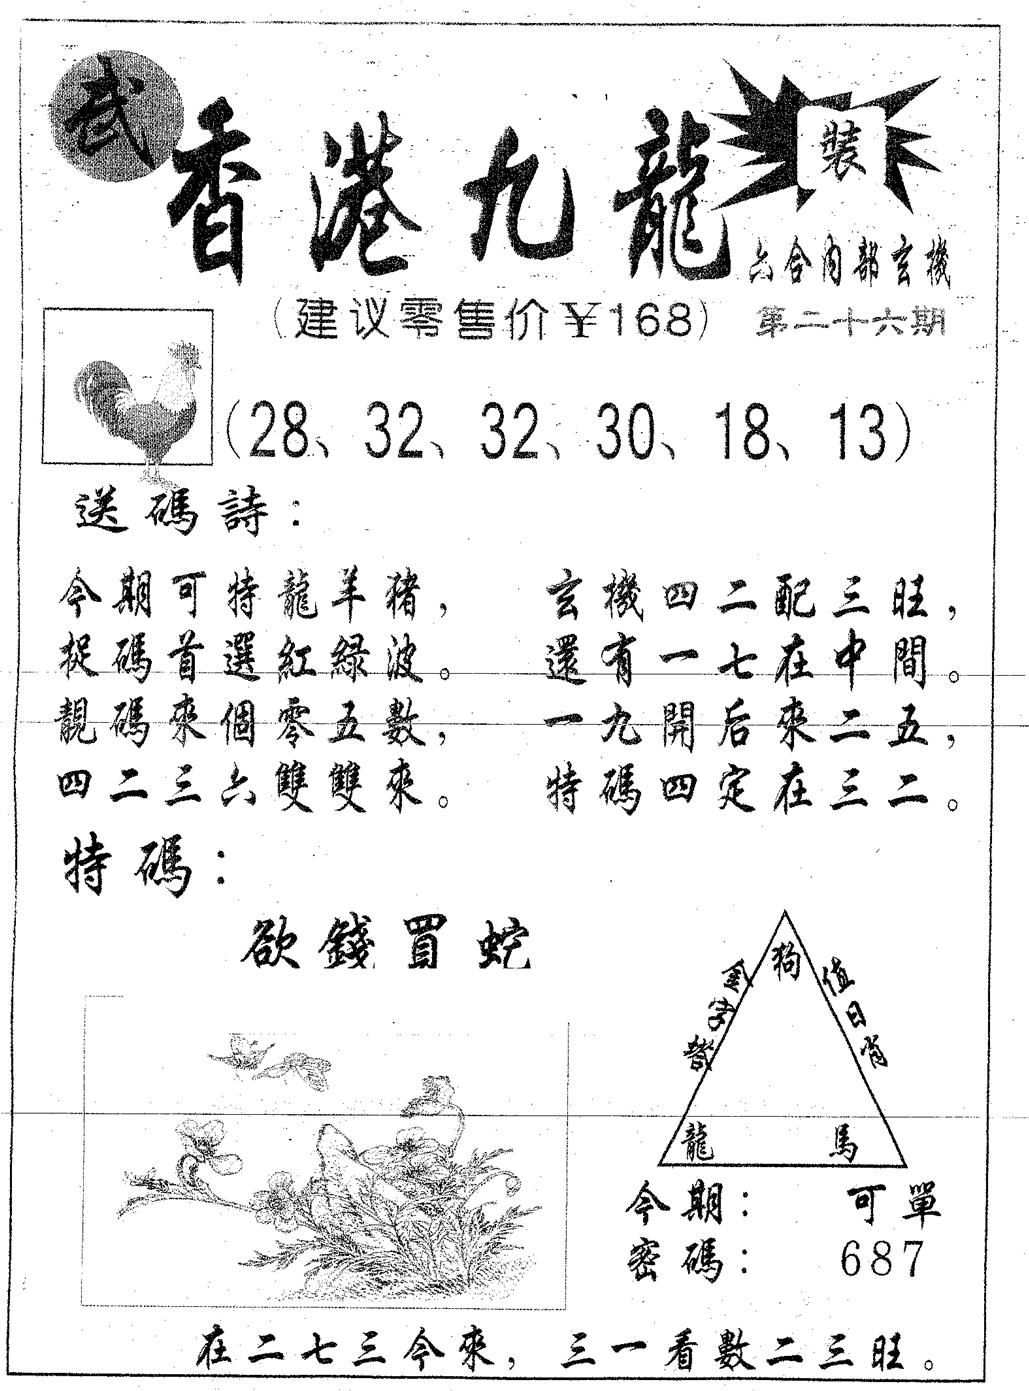 武
香港九龍
裝
六合内部玄機
(建议零售价￥168)
第二十六期
(28、32、32、30、18、13)
送碼詩：
今期可特龍羊猪，
捉碼首選紅綠波。
靚碼來個零五數，
四二三六雙雙來。
玄機四二配三旺，
還有一七在中間。
一九開后來二五，
特碼四定在三二。
特碼：
欲錢買蛇
狗
金字塔
值日肖
龍 馬
今期： 可單
密碼： 687
在二七三今來，三一看數二三旺。